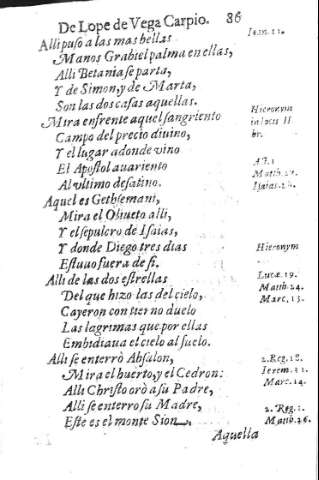 De Lope de Vega Carpio. 86
Alli puso a las mas bellas
Manos Grabiel palma en ellas,
Alli Betania se parta,
Y de Simon, y de Marta,
Son las dos casas aquellas.
Mira enfrente aquel sangriento
Campo del precio diuino,
Y el lugar adonde vino
El Apostol auariento
Al vltimo desatino.
Aquel es Gethsemani,
Mira el Oliueto alli,
Y el sepulcro de Isaias,
Y donde Diego tres dias
Estuuo fuera de si.
Alli de las dos estrellas
Del que hizo las del cielo,
Cayeron con tierno duelo
Las lagrimas que por ellas
Embidiaua el cielo al suelo.
Alli se enterrò Absalon,
Mira el huerto, y el Cedron:
Alli Christo orò a su Padre,
Alli se enterro su Madre,
Este es el monte Sion,
Aquella
Ioan. 11.
Hieronym
in locis H
br.
Matth.
Isaias.
Hieronym
Lucæ. 19.
Matth. 24.
Marc. 13.
2. Reg. 18.
Ierem. 31.
Marc. 14.
2. Reg.
Matth. 26.